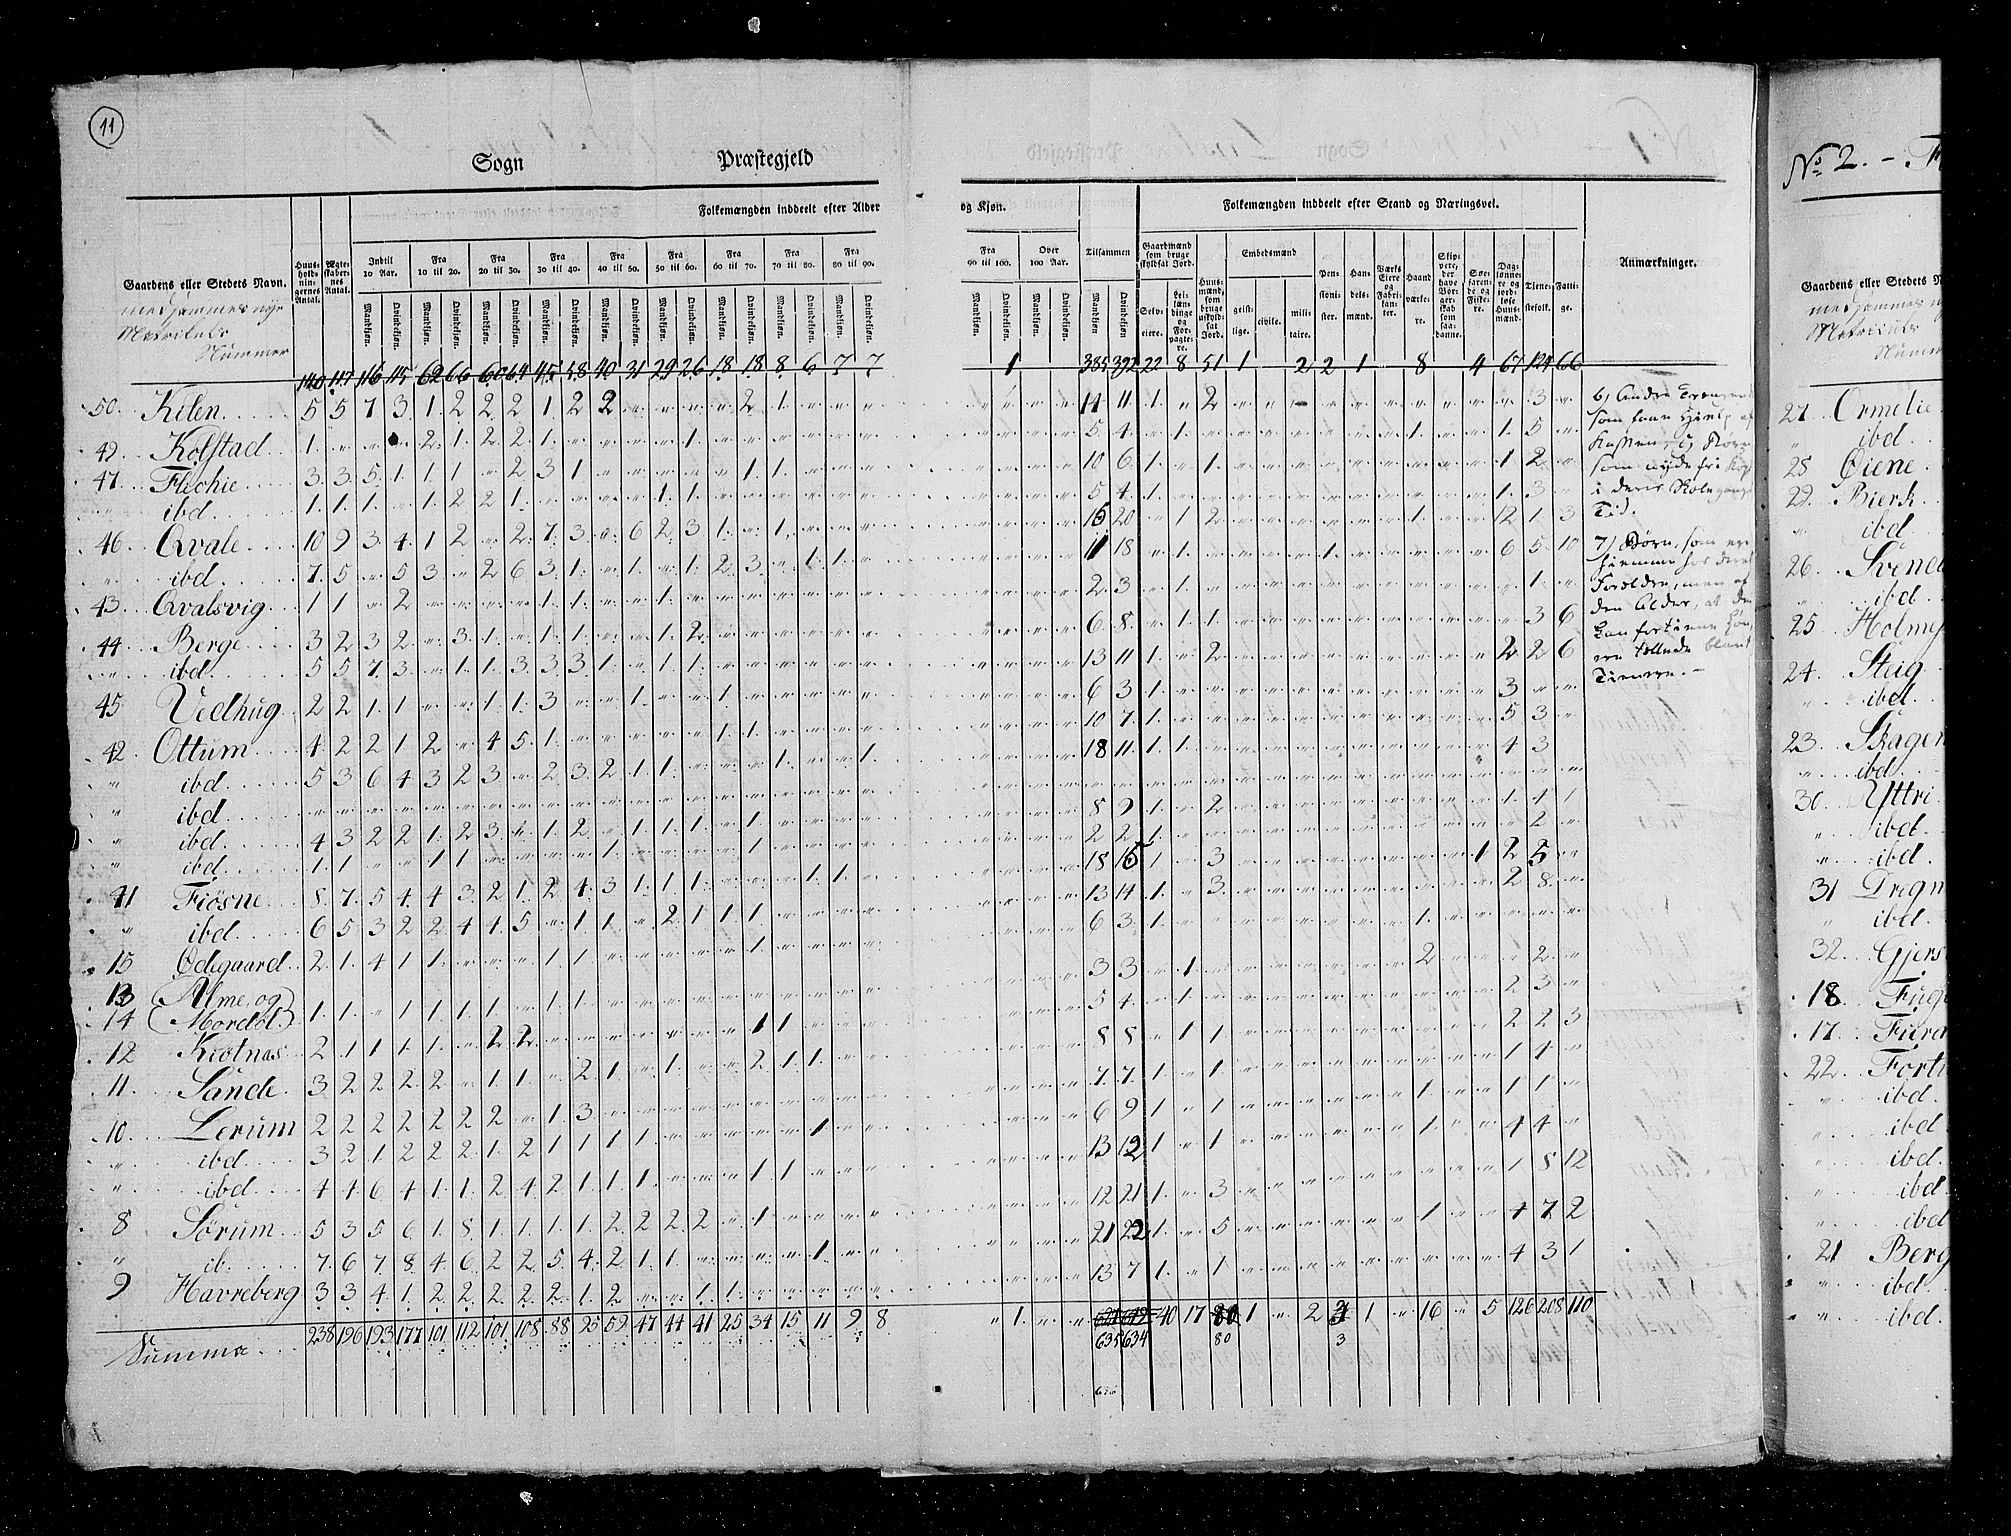 11
Sogn Præstegjeld
Folkemængden inddeelt efter Alder og Kjøn.
Folkemængden inddeelt efter Stand og Næringsvei.
Gaardens eller Stedets Navn.
med sammes nye
Matrikuls
Nummer
Huus-holdnin-gernes Antal.
Ægte-skaber-nes Antal.
Indtil 10 Aar.
Fra 10 til 20.
Fra 20 til 30.
Fra 30 til 40.
Fra 40 til 50.
Fra 50 til 60.
Fra 60 til 70.
Fra 70 til 80.
Fra 80 til 90.
Fra 90 til 100.
Over 100 Aar.
Tilsammen
Mandkiøn. Qvindekiøn.
Gaardmænd som bruge skyldsat Jord.
Selv-eiere.
Lei-lændinge og For-pagte-re.
Huus-mænd, som bruge uskyld-sat Jord.
Embedsmænd
geist-lige. civile. mili-taire.
Pen-sioni-ster.
Han-dels-mænd.
Værks Eiere og Fabri-kan-ter.
Haand værke-re.
Skip-pere, der have Bor-ger-skab som saa-danne.
Søe-faren-de og Fiske-re.
Dag-lønne-re og jord-løse Huus-mænd.
Tjene-stefolk.
Fatti-ge.
Anmærkninger.
140 117 116 115 62 66 60 64 45 58 40 31 29 26 18 18 8 6 7 7 1 385 392 22 8 51 1 2 2 1 8 4 67 124 66
50 Kilen 5 5 7 3 1 2 2 2 1 2 2 2 1 14 11 1 2 3
49 Kolstad 1 2 1 2 2 1 1 5 4 1 1 1 5
47 Flechie 3 3 5 1 1 1 2 3 1 1 1 10 6 1 1 1 2
ibd 1 1 1 1 2 2 1 1 1 5 4 1 1 3
46 Qvale 10 9 3 4 1 2 2 7 3 6 2 3 1 1 15 20 1 2 1 12 1 3
ibd 7 5 5 3 2 6 3 1 1 1 2 3 1 1 11 18 1 1 6 5 10
43 Qvalsvig 1 1 2 1 1 1 2 3 1 1
44 Berge 3 2 3 2 3 1 1 1 1 2 6 8 1 1 3 6
ibd 5 5 7 3 1 1 3 3 3 1 1 1 13 11 1 2 2 2 6
45 Vedhug 2 2 1 1 1 1 3 1 1 6 3 1 3
42 Ottum 4 2 2 1 2 4 5 1 1 1 10 7 1 5 3
ibd 5 3 6 4 3 2 3 2 3 2 1 1 1 1 18 11 1 1 4 3
ibd
ibd 4 3 2 2 1 2 3 1 2 1 1 1 1 8 9 1 2 1 4 1
ibd 1 1 1 1 1 1 2 2 1 2
41 Fiøsne 8 7 5 4 4 3 2 1 2 4 3 1 1 1 1 1 18 15 1 3 1 2 5
ibd 6 5 3 2 2 4 4 5 1 1 2 1 1 1 13 14 1 3 2 8
15 Ødegaard 2 1 4 1 1 1 1 1 6 3 1 1
13 (Alme, og)
14 (Mordøl) 1 1 1 1 1 1 1 1 3 3 1 2 2
12 Kiotnas 2 1 1 1 1 2 2 1 1 5 4 1 2 3
11 Sande 3 2 2 2 2 1 1 2 1 1 2 1 1 8 8 1 1 2 2 3
10 Lerum 2 2 2 2 2 2 2 1 3 7 7 1 1 1 4
ibd 3 2 1 2 2 2 1 2 1 1 1 1 1 6 9 1 1 1 1 1
ibd 4 4 6 4 1 1 2 4 2 1 1 1 1 1 13 12 1 1 1 4 4
8 Sørum 5 3 5 6 1 8 1 1 1 1 2 2 2 2 1 12 21 1 3 1 8 12
ib 7 6 7 8 4 6 2 2 5 4 2 1 1 1 21 22 1 5 1 4 7 2
9 Havreberg 3 3 4 1 2 2 2 2 2 1 2 1 1 13 7 1 1 4 3 1
Summa 238 196 193 177 101 112 101 108 88 95 59 47 44 41 25 34 15 11 9 8 1 40 17 80 1 2 3 1 16 5 126 208 110
635 634 80 3
6) Andre Trængende
som faae Hielp af
Kassen, og Børn
som nyde fri Kost
i deres Skolegangs
Tid.
7) Børn, som ere
hiemme hos deres
Forældre, men af
den Alder, at de
kan fortiene Løn,
ere tællede blant
Tienere.
No 2.
Gaardens eller Stedets
med sammes
Matrikuls
27 Ormelie
ibd
28 Øiene
29 Bierk
ibd
26 Svened
ibd
25 Holme
24 Steig
ibd
23 Skagen
ibd
30 Yttri
ibd
ibd
31 Dregn
ibd
32 Gjers
18 Fuge
17 Fierd
22 Fortu
ibd
ibd
ibd
ibd
ibd
21 Berg
ibd
ibd